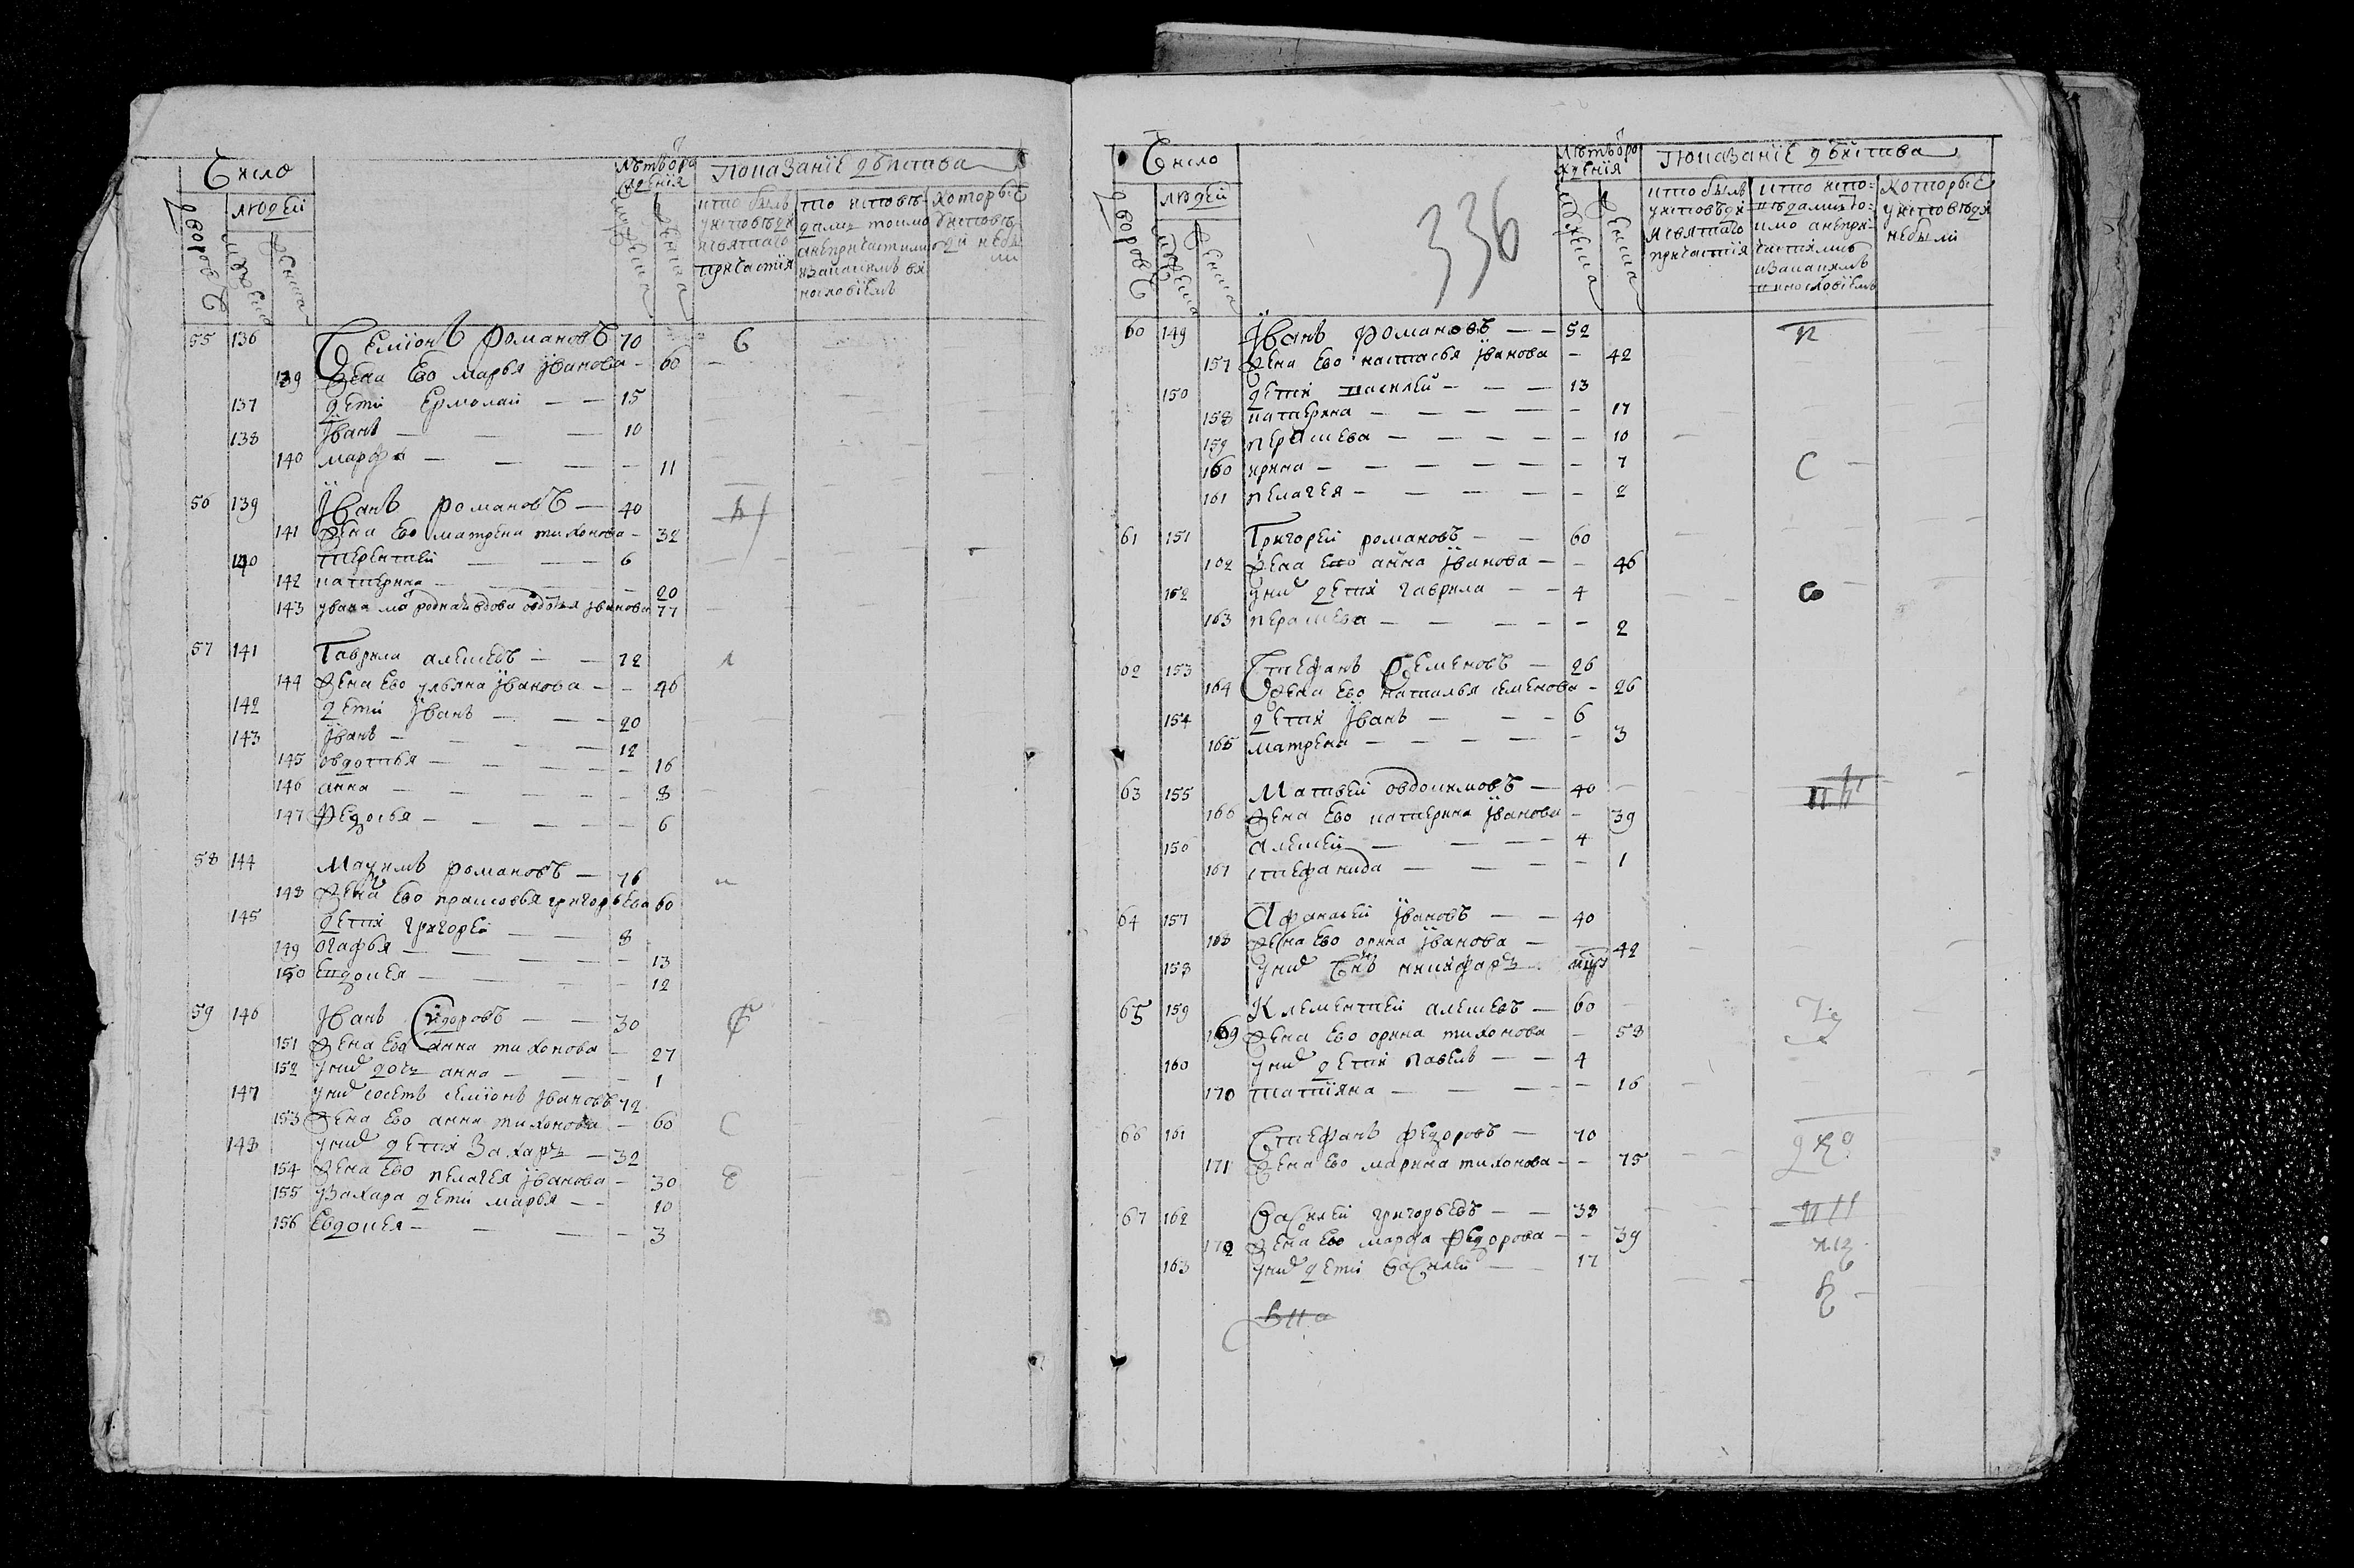 Число
лѣтъ от рождения
показание действа
дворовъ
людей
мужеска
женска
мужеска
женска
кто былъ у исповеди и святаго причастия
кто исповедались токмо а не причастились и за каким виновствиемъ
которые у исповеди не были
55 136 Семионъ романовъ 70
139 жена ево марья иванова – 60
137 дети Ермолаи – – 15
138 Иванъ – – – 10
140 марфа – – – – 11
56 139 Иванъ романовъ – 40
141 жена ево матрена тихонова – 32
140 терентей – – – 6
142 катерина – – – 20
143 у ивана мать родная вдова овдотья иванова 77
57 141 Гаврила алексевъ – – 72
144 жена ево ульяна иванова – – 46
142 дети Иванъ – – – 20
143 Иванъ – – – – 12
145 овдотья – – – – – 16
146 анна – – – – – 8
147 Федосья – – – – – 6
58 144 Маѯимъ романовъ – 76
148 жена ево прасковья григорьева 60
145 дети григореи – – 8
149 огафья – – – – – 13
150 Евдокея – – – – 12
59 146 Иванъ Сидоровъ – – 30
151 жена ево анна тихонова – 27
152 у нихъ дочь анна – – – 1
147 у нихъ соседъ семионъ ивановъ 72
153 жена ево анна тихонова – 60
148 у нихъ дети Захаръ – 32
154 жена ево пелагея иванова – 30
155 у Захара дети марья – – 10
156 Евдокея – – – – 3
336
Число
лѣтъ от рождения
показание действа
дворовъ
людей
мужеска
женска
мужеска
женска
кто былъ у исповеди и святаго причастия
кто исповедались токмо а не причастились и за каким виновствиемъ
которые у исповеди не были
60 149 Иванъ романовъ – – 52
157 жена ево настасья иванова – 42
150 дети василей – – – 13
158 катерина – – – – – 17
159 парасковья – – – – – 10
160 ирина – – – – – – 7
161 пелагея – – – – – 2
61 151 Григореи романовъ – – 60
162 жена ево анна иванова – – 46
152 у нихъ дети гаврила – – 4
163 – – – – – 2
62 153 Стефанъ Семеновъ – 26
164 жена ево наталья семенова – 26
154 дети Иванъ – – – 6
165 матрена – – – – – 3
63 155 Матвей овдокимовъ – 40
166 жена ево катерина иванова – 39
156 алексей – – – – 4
167 стефанида – – – – 1
64 157 Афонасей Ивановъ – – 40
168 жена ево орина иванова – – 42
158 у нихъ снъ никифаръ
65 159 Клементей алексевъ – 60
169 жена ево орина тихонова – 58
160 у нихъ дети павелъ – – 4
170 татияна – – – – 16
66 161 Стефанъ федоровъ – 70
171 жена ево марина тихонова – – 75
67 162 Василей григорьевъ – – 38
172 жена ево марфа федорова – – 39
163 у нихъ дети василей – – 17